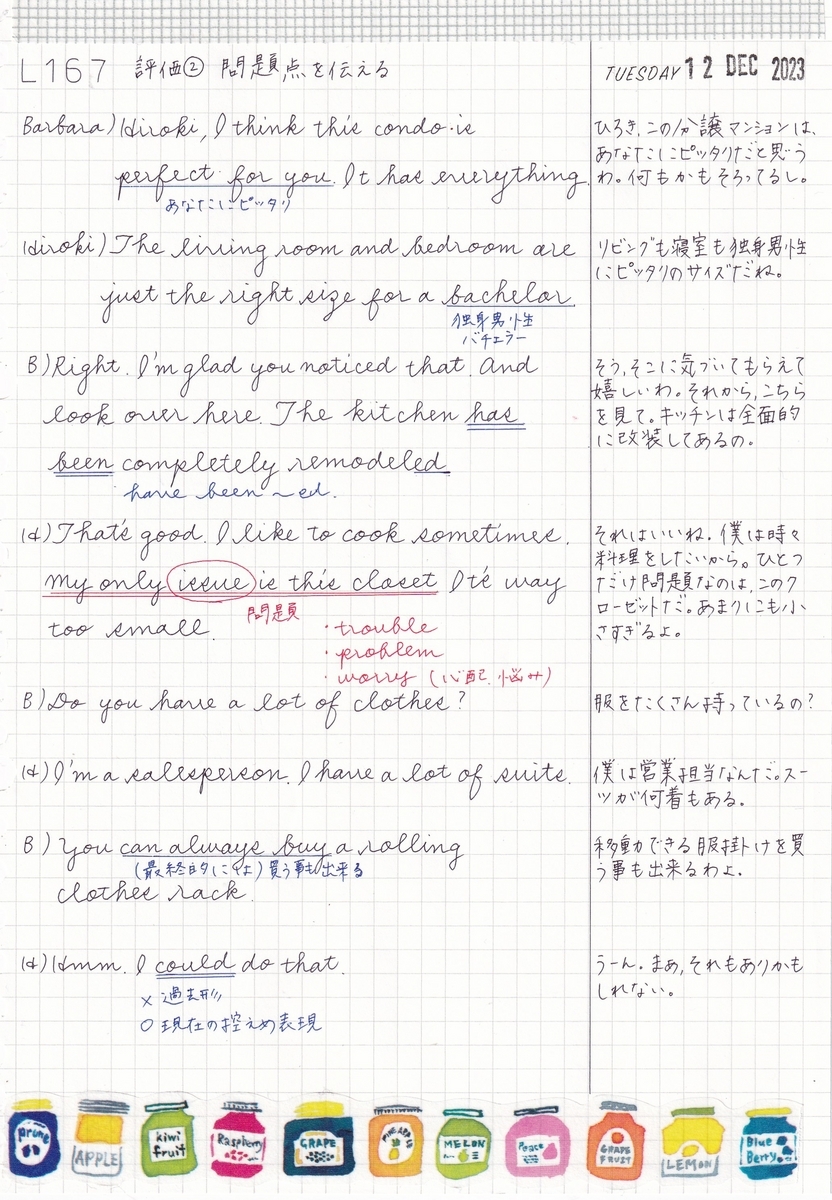 L167 評価② 問題点を伝える
TUESDAY 12 DEC 2023
Barbara) Hiroki, I think this condo is
perfect for you. It has everything.
あなたにピッタリ
ひろき、この分譲マンションは、
あなたにピッタリだと思う
わ。何もかもそろってるし。
Hiroki) The living room and bedroom are
just the right size for a bachelor.
独身男性
バチェラー
リビングも寝室も独身男性
にピッタリのサイズだね。
B) Right. I'm glad you noticed that. And
look over here. The kitchen has
been completely remodeled.
have been ~ed.
そう、そこに気づいてもらえて
嬉しいわ。それから、こちら
を見て。キッチンは全面的
に改装してあるの。
H) That's good. I like to cook sometimes.
My only issue is this closet. It's way
too small.
問題
・trouble
・problem
・worry (心配、悩み)
それはいいね。僕は時々
料理をしたいから。ひとつ
だけ問題なのは、このク
ローゼットだ。あまりにも小
さすぎるよ。
B) Do you have a lot of clothes?
服をたくさん持っているの?
H) I'm a salesperson. I have a lot of suits.
僕は営業担当なんだ。スー
ツが何着もある。
B) You can always buy a rolling
(最終的には)買う事も出来る
clothes rack.
移動できる服掛けを買
う事も出来るわよ.
H) Hmm. I could do that.
× 過去形
○ 現在の控えめ表現
うーん。まあ、それもありかも
しれない。
prune
APPLE
kiwi
fruit
Raspberry
GRAPE
PINEAPPLE
MELON
Peace
GRAPE
FRUIT
LEMON
Blue
Berry